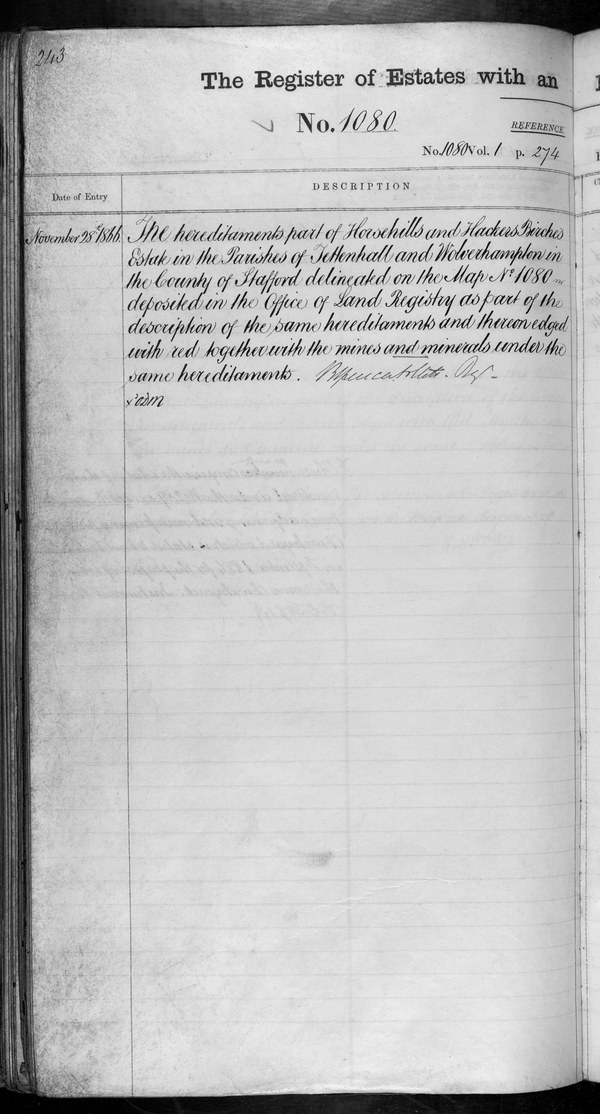 243
The Register of Estates with an
No. 1080.
REFERENCE
No. 1080 Vol. 1 p. 274
Date of Entry
DESCRIPTION
November 28th 1866. The hereditaments part of Horsehills and Hackers Birches
Estate in the Parishes of Tettenhall and Wolverhampton in
the County of Stafford delineated on the Map No 1080
deposited in the Office of Land Registry as part of the
description of the same hereditaments and thereon edged
with red together with the mines and minerals under the
same hereditaments.